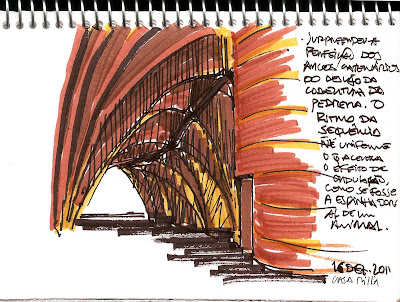 SURPREENDEU A
PERFEIÇÃO DOS
ARCOS CATENÁRIOS
DO DESVÃO DA
COBERTURA DA
PEDRERA. O
RITMO DA
SEQUÊNCIA
Ñ É UNIFORME
O Q ACENTUA
O EFEITO DE
ONDULAÇÃO,
COMO SE FOSSE
A ESPINHA DORS
AL DE UM
ANIMAL.
16 DEZ. 2011
CASA MILÀ